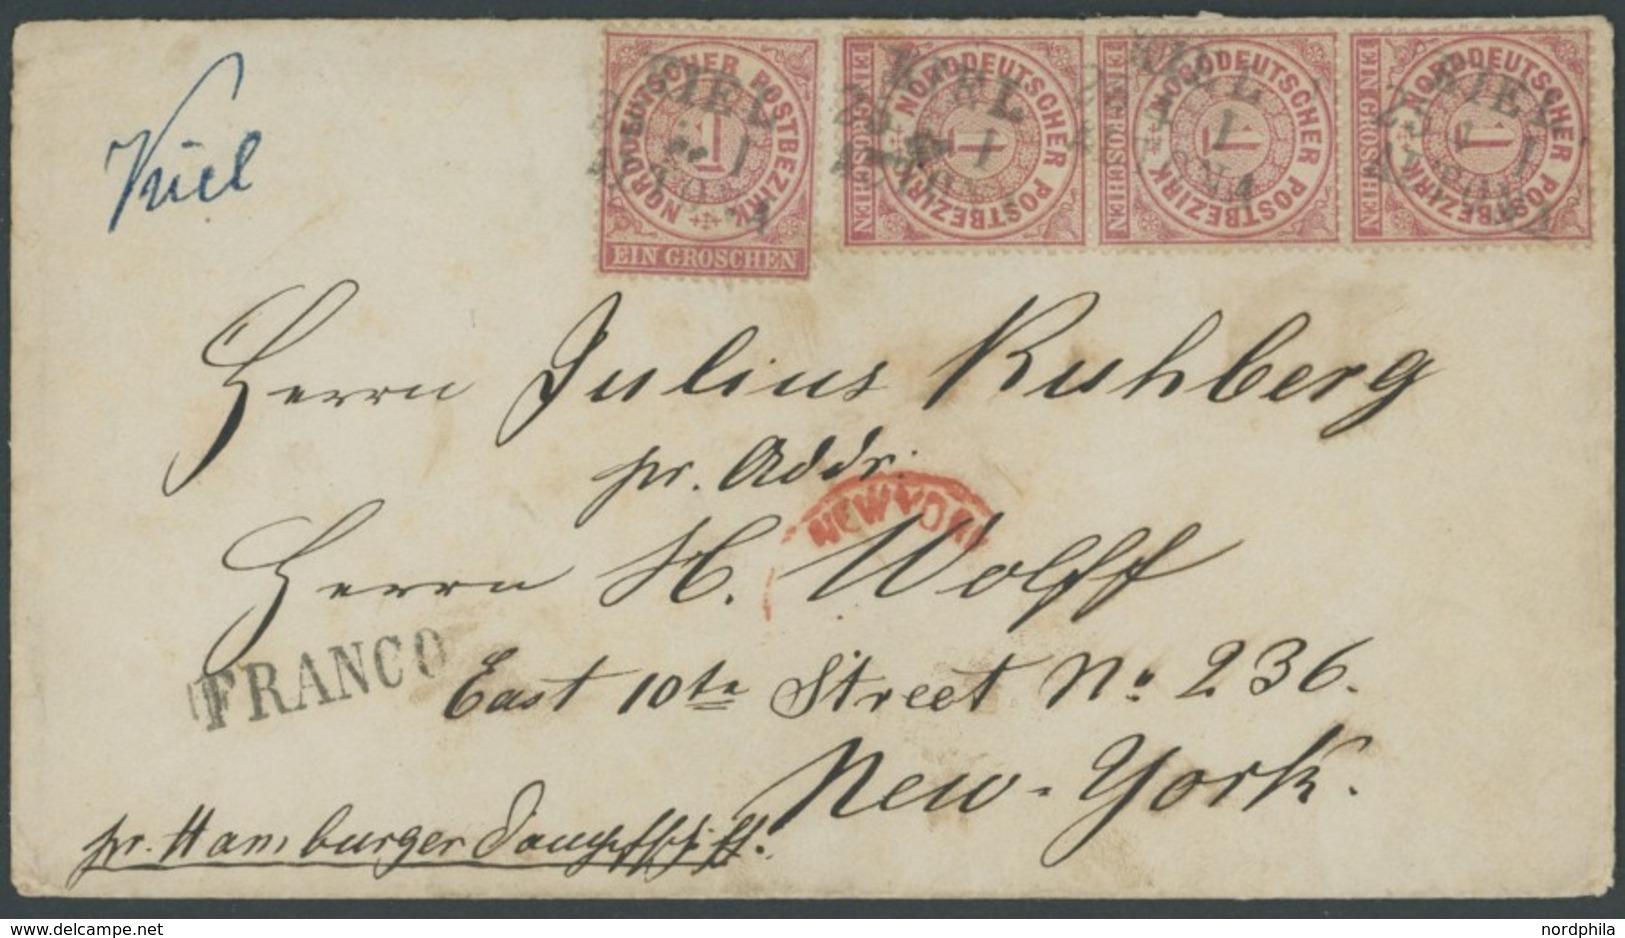 Kiel
NORDDEUTSCHER POSTBEZIRK
1
EIN GROSCHEN
NORDDEUTSCHER POSTBEZIRK
1
EIN GROSCHEN
NORDDEUTSCHER POSTBEZIRK
1
EIN GROSCHEN
NORDDEUTSCHER POSTBEZIRK
1
EIN GROSCHEN
KIEL
KIEL
KIEL
KIEL
Herrn Julius Ruhberg
pr. Addr.
NEW YORK
Herrn H. Wolff
FRANCO
East 10te Street No. 236.
New-York.
pr. Hamburger Dampfschiff.
nordphila